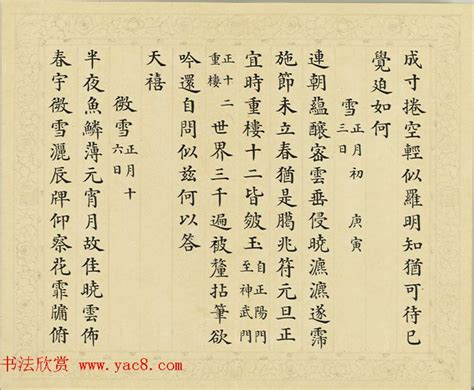 成寸捲空輕似羅明知猶可待已
覺迫如何
雪 正月初三日 庚寅
連朝蘊釀密雲垂侵曉瀌瀌遂霈
施節未立春猶是臘兆符元旦正
宜時重樓十二皆皴玉 自正陽門至神武門
正十二重樓 世界三千遍被釐拈筆欲
吟還自問似茲何以答
天禧
微雪 正月十六日
半夜魚鱗薄元宵月故佳曉雲佈
春宇微雪灑辰牌仰察花霏牖俯
书法欣赏 www.yac8.com